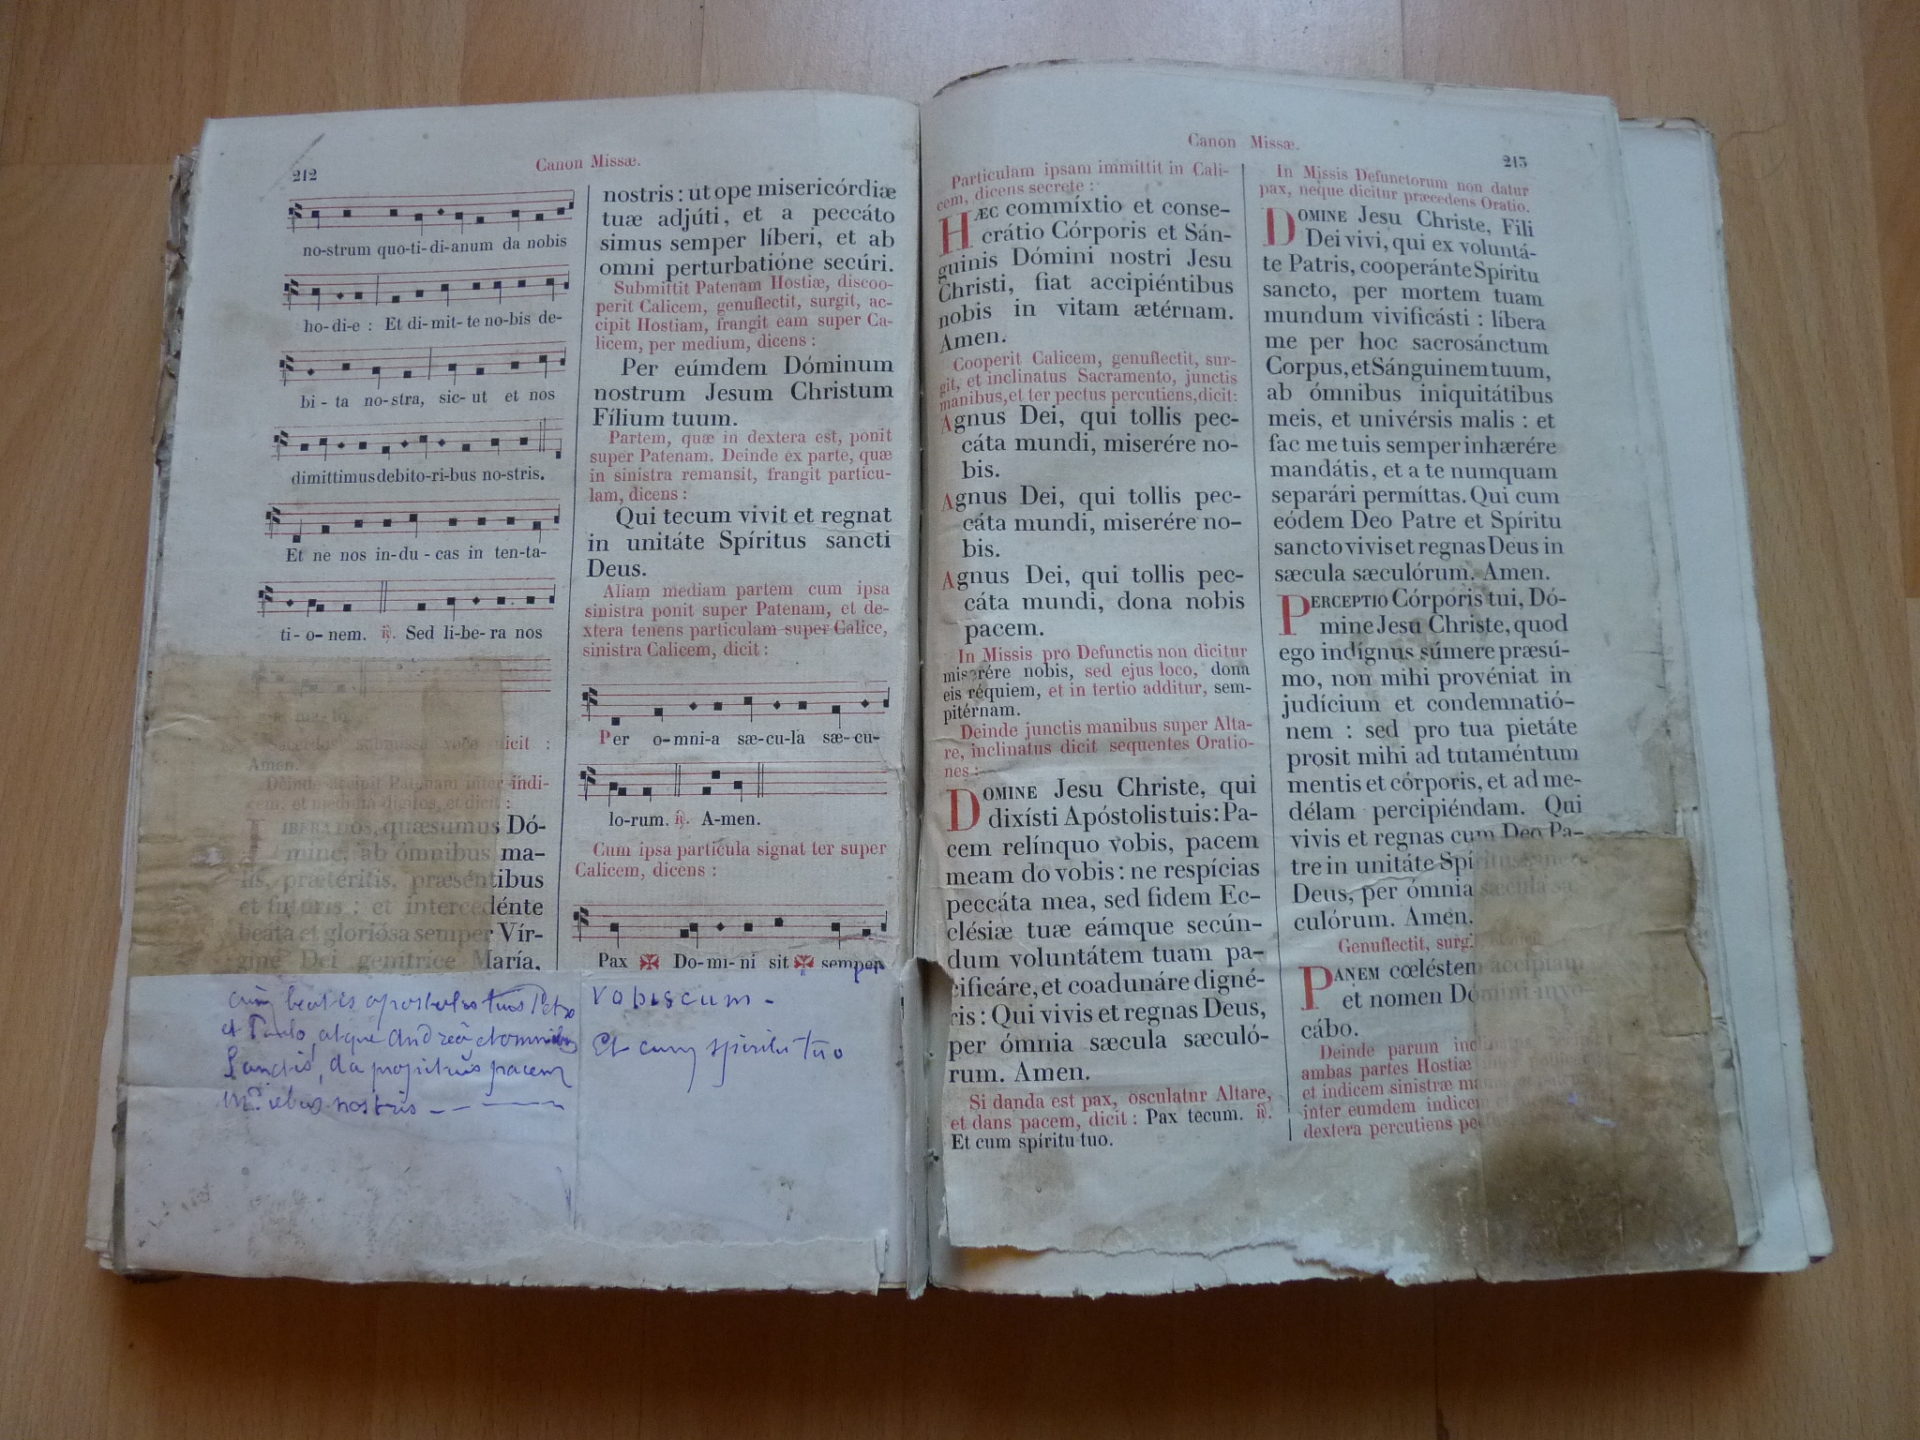 212
Canon Missæ.
no-strum quo-ti-di-anum da nobis
ho-di-e : Et di-mit-te no-bis de-
bi-ta no-stra, sic-ut et nos
dimittimus debito-ri-bus no-stris.
Et ne nos in-du-cas in ten-ta-
ti-o-nem. ℟. Sed li-be-ra nos
a ma-lo.
Sacerdos submissa voce dicit :
Amen.
Deinde accipit Patenam inter indi-
cem, et medium digitos, et dicit :
LIBERA nos, quæsumus Dó-
mine, ab ómnibus ma-
lis, prætéritis, præséntibus
et futúris : et intercedénte
beáta et gloriósa semper Vír-
gine Dei genitríce María,
cum beatis apostolis tuis Petro
et Paulo, atque Andreâ et omnibus
Sanctis, da propitius pacem
in diebus nostris
nostris : ut ope misericórdiæ
tuæ adjúti, et a peccáto
simus semper líberi, et ab
omni perturbatióne secúri.
Submittit Patenam Hostiæ, discoo-
perit Calicem, genuflectit, surgit, ac-
cipit Hostiam, frangit eam super Ca-
licem, per medium, dicens :
Per eúmdem Dóminum
nostrum Jesum Christum
Fílium tuum.
Partem, quæ in dextera est, ponit
super Patenam. Deinde ex parte, quæ
in sinistra remansit, frangit particu-
lam, dicens :
Qui tecum vivit et regnat
in unitáte Spíritus sancti
Deus.
Aliam mediam partem cum ipsa
sinistra ponit super Patenam, et de-
xtera tenens particulam super Calice,
sinistra Calicem, dicit :
Per o-mni-a sæ-cu-la sæ-cu-
lo-rum. ℟. A-men.
Cum ipsa particula signat ter super
Calicem, dicens :
Pax ✠ Do-mi-ni sit ✠ semper
vobiscum -
Et cum spiritu tuo
Canon Missæ.
213
Particulam ipsam immittit in Cali-
cem, dicens secrete :
HÆC commíxtio et conse-
crátio Córporis et Sán-
guinis Dómini nostri Jesu
Christi, fiat accipiéntibus
nobis in vitam ætérnam.
Amen.
Cooperit Calicem, genuflectit, sur-
git, et inclinatus Sacramento, junctis
manibus, et ter pectus percutiens, dicit:
Agnus Dei, qui tollis pec-
cáta mundi, miserére no-
bis.
Agnus Dei, qui tollis pec-
cáta mundi, miserére no-
bis.
Agnus Dei, qui tollis pec-
cáta mundi, dona nobis
pacem.
In Missis pro Defunctis non dicitur
miserére nobis, sed ejus loco, dona
eis réquiem, et in tertio additur, sem-
pitérnam.
Deinde junctis manibus super Alta-
re, inclinatus dicit sequentes Oratio-
nes :
DOMINE Jesu Christe, qui
dixísti Apóstolis tuis : Pa-
cem relínquo vobis, pacem
meam do vobis : ne respícias
peccáta mea, sed fidem Ec-
clésiæ tuæ eámque secún-
dum voluntátem tuam pa-
cificáre, et coadunáre digné-
ris : Qui vivis et regnas Deus,
per ómnia sæcula sæculó-
rum. Amen.
Si danda est pax, osculatur Altare,
et dans pacem, dicit : Pax tecum. ℟.
Et cum spíritu tuo.
In Missis Defunctorum non datur
pax, neque dicitur præcedens Oratio.
DOMINE Jesu Christe, Fili
Dei vivi, qui ex voluntá-
te Patris, cooperánte Spíritu
sancto, per mortem tuam
mundum vivificásti : líbera
me per hoc sacrosánctum
Corpus, et Sánguinem tuum,
ab ómnibus iniquitátibus
meis, et univérsis malis : et
fac me tuis semper inhærére
mandátis, et a te numquam
separári permíttas. Qui cum
eódem Deo Patre et Spíritu
sancto vivis et regnas Deus in
sæcula sæculórum. Amen.
PERCEPTIO Córporis tui, Dó-
mine Jesu Christe, quod
ego indígnus súmere præsú-
mo, non mihi provéniat in
judícium et condemnatió-
nem : sed pro tua pietáte
prosit mihi ad tutaméntum
mentis et córporis, et ad me-
délam percipiéndam. Qui
vivis et regnas cum Deo Pa-
tre in unitáte Spíritus sancti
Deus, per ómnia sæcula sæ-
culórum. Amen.
Genuflectit, surg
PANEM cœléstem accípiam
et nomen Dómini invo-
cábo.
Deinde parum
ambas partes Hostiæ
et indicem sinistræ
inter eumdem indicem
dextera percutiens